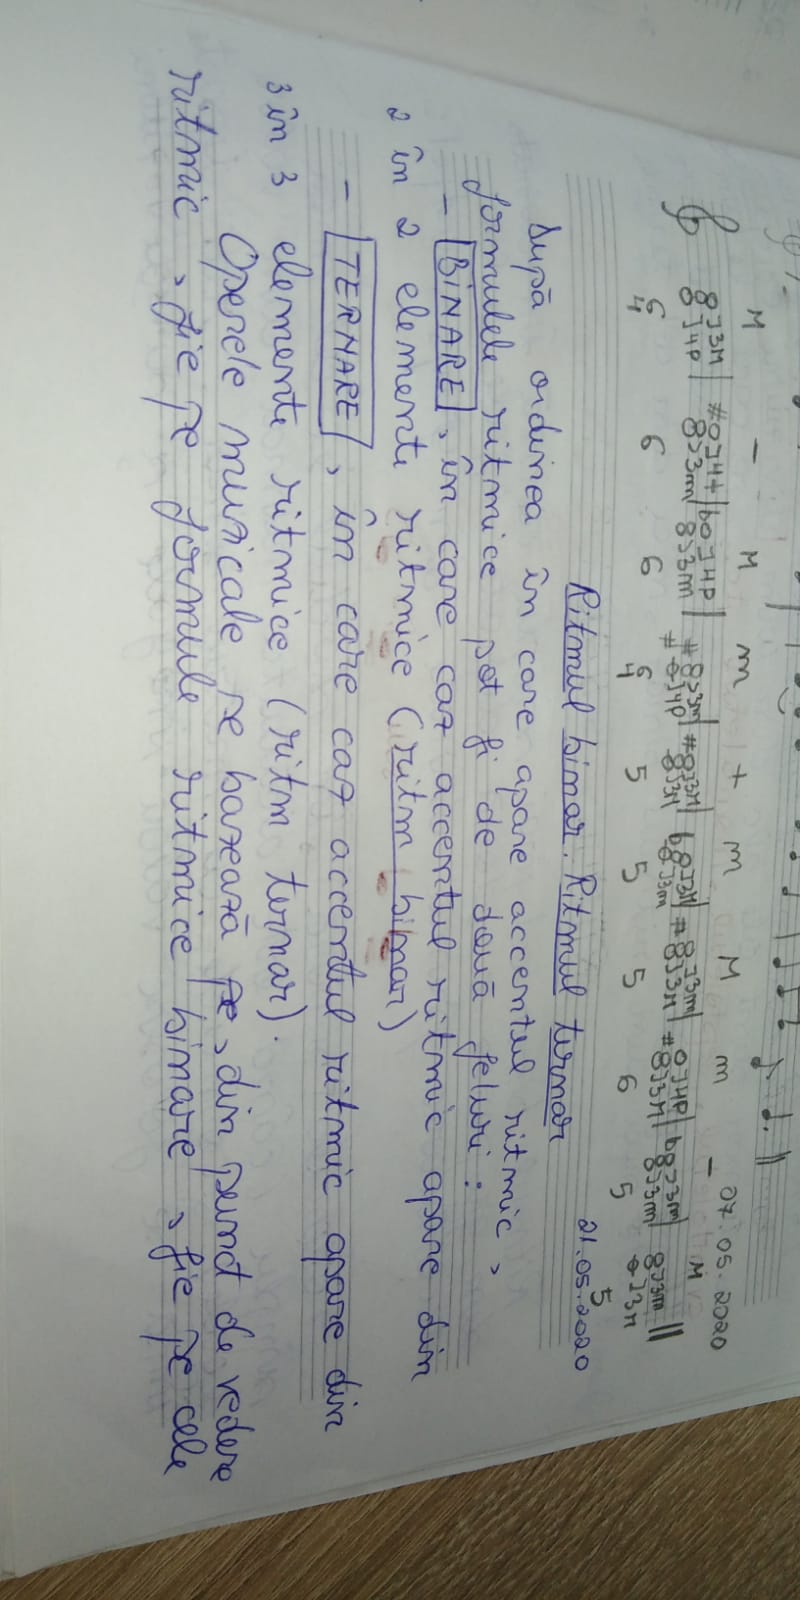 07.05.2020
M - M m + m M m - M
6 6 6 6 5 5 5 6 5 5
4 4
21.05.2020
Ritmul binar. Ritmul ternar
După ordinea în care apare accentul ritmic,
formulele ritmice pot fi de două feluri:
- BINARE, în care caz accentul ritmic apare din
2 în 2 elemente ritmice (ritm binar)
- TERNARE, în care caz accentul ritmic apare din
3 în 3 elemente ritmice (ritm ternar).
Operele muzicale se bazează pe, din punct de vedere
ritmic, fie pe formule ritmice binare, fie pe cele